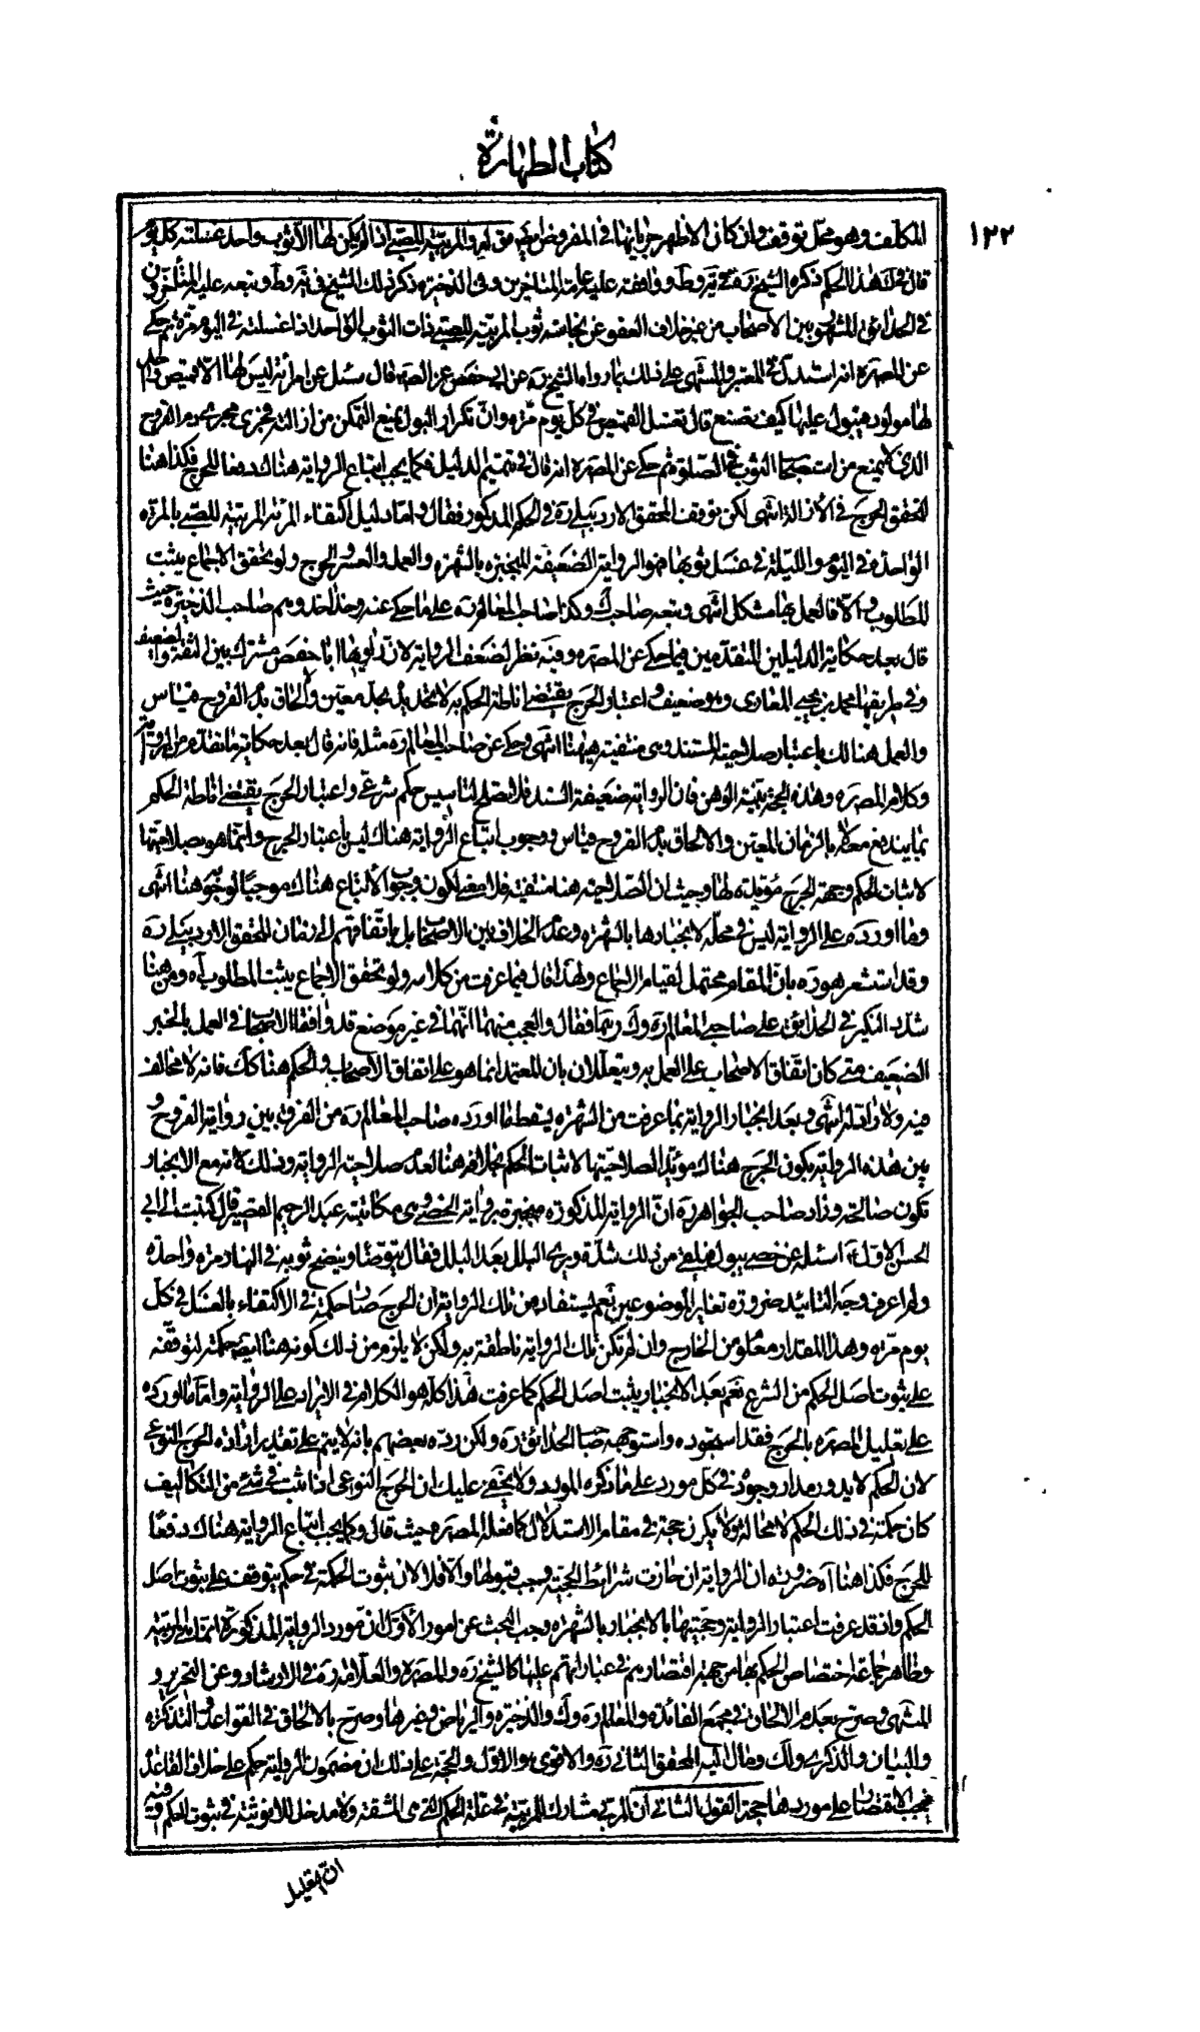 كتاب الطهارة
١٢٢
المكلف وهو محل توقف وان كان الاظهر جريانها في المفروض ايضا قوله والمربية للصبي اذا لم يكن لها الا ثوب واحد غسلته كل يوم
قال في ك هذا الحكم ذكره الشيخ ره في ية وط ووافقه عليه عامة المتأخرين وفي الذخيرة ذكر ذلك الشيخ في ية وط وتبعه عليه المتأخرون
في الحدائق المشهور بين الاصحاب من غير خلاف العفو عن نجاسة ثوب المربية للصبي ذات الثوب الواحد اذا غسلته في اليوم مرة ثم حكى
عن المصره انه استدل في المعتبر والمنتهى على ذلك بما رواه الشيخ ره عن ابي حفص عن الصم قال سئل عن امرأة ليس لها الا قميص واحد
لها مولود فيبول عليها كيف تصنع قال تغسل القميص في كل يوم مرة وان تكرار البول يمنع التمكن من ازالته فجرى مجرى دم القروح
الذي لا يمنع من استصحاب الثوب في الصلوة ثم حكى عن المصره انه قال في تتميم الدليل فكما يجب اتباع الرواية هناك دفعا للحرج فكذا هنا
لتحقق الحرج في الازالة انتهى لكن توقف المحقق الاردبيلي ره في الحكم المذكور فقال واما دليل اكتفاء المرأة المربية للصبي بالمرة
الواحدة في اليوم والليلة في غسل ثوبها فهو الرواية الضعيفة المنجبرة بالشهرة والعمل والعسر والحرج ولو تحقق الاجماع يثبت
المطلوب والا فالعمل بها مشكل انتهى وتبعه صاحب ك وكذا صاحب المعالم ره على ما حكى عنه وحذا حذوهم صاحب الذخيرة حيث
قال بعد حكاية الدليلين المتقدمين فيما حكى عن المصره وفيه نظر لضعف الرواية لان راويها ابا حفص مشترك بين الثقة والضعيف
وفي طريقها محمد بن يحيى المعاذي وهو ضعيف واعتبار الحرج يقتضي اناطة الحكم به لا التحديد بحد معين والحاق بدم القروح قياس
والعمل هنالك باعتبار صلاحية المستند وهي منتفية هيهنا انتهى وحكى عن صاحب المعالم ره مثله فانه قال بعد حكاية ما تقدم من الرواية
وكلام المصره وهذه الحجة بينة الوهن فان الرواية ضعيفة السند فلا تصلح لتأسيس حكم شرعي واعتبار الحرج يقتضي اناطة الحكم
بما يندفع معه لا بالزمان المعين والالحاق بدم القروح قياس ووجوب اتباع الرواية هناك ليس باعتبار الحرج وانما هو بصلاحيتها
لاثبات الحكم وجهة الحرج مؤيدة لها وحيث ان الصلاحية هنا منتفية فلا معنى لكون وجوب الاتباع هناك موجبا لوجوبه هنا انتهى
وما اورده على الرواية ليس في محله لانجبارها بالشهرة وعدم الخلاف بين الاصحاب بل باتفاقهم الى زمان المحقق الاردبيلي ره
وقد استشعر هو ره بان المقام محتمل لقيام الاجماع ولهذا قال فيما عرفت من كلامه ولو تحقق الاجماع يثبت المطلوب اه ومن هنا
شدد النكير في الحدائق على صاحبي المعالم ره وك وتبعهما فقال والعجب منهما انهما في غير موضع قد وافقا الاصحاب في العمل بالخبر
الضعيف متى كان اتفاق الاصحاب على العمل به ويتعللان بان المعتمد انما هو على اتفاق الاصحاب والحكم هنا كك فانه لا مخالف
فيه ولا راد له انتهى وبعد انجبار الرواية بما عرفت من الشهرة يسقط ما اورده صاحب المعالم ره من الفرق بين رواية القروح و
بين هذه الرواية بكون الحرج هناك مؤيدا لصلاحيتها لاثبات الحكم بخلافه هنا لعدم صلاحية الرواية وذلك لانه مع الانجبار
تكون صالحة وزاد صاحب الجواهر ره ان الرواية المذكورة منجبرة برواية الخصي وهي مكاتبة عبد الرحيم القصير قال كتبت الى ابي
الحسن الاول ع اسئله عن خصي يبول فيلقى من ذلك شدة ويرى البلل بعد البلل فقال يتوضأ وينضح ثوبه في النهار مرة واحدة
ولم اعرف وجه التأييد ضرورة تغاير الموضوعين نعم يستفاد من تلك الرواية ان الحرج صار حكمة في الاكتفاء بالغسل في كل
يوم مرة وهذا المقدار معلوم من الخارج وان لم تكن تلك الرواية ناطقة به ولكن لا يلزم من ذلك كونه هنا ايضا حكمة لتوقفه
على ثبوت اصل الحكم من الشرع نعم بعد الانجبار يثبت اصل الحكم كما عرفت هذا كله هو الكلام في الايراد على الرواية واما ما اورده
على تعليل المصره بالحرج فقد استجوده واستوجهه صاحب الحدائق ره ولكن رده بعضهم بانه لا يتم على تقدير ارادة الحرج النوعي
لان الحكم لا يدور مدار وجوده في كل مورد على ما ذكره المورد ولا يخفى عليك ان الحرج النوعي اذا ثبت في شئ من التكاليف
كان حكمة في ذلك الحكم لا محالة ولا يكون حجة في مقام الاستدلال كما فعله المصره حيث قال وكما يجب اتباع الرواية هناك دفعا
للحرج فكذا هنا اه ضرورة ان الرواية ان حازت شرائط الحجية وجب قبولها والا فلا لان ثبوت الحكمة في حكم يتوقف على ثبوت اصل
الحكم واذ قد عرفت اعتبار الرواية وحجيتها بالانجبار بالشهرة وجب البحث عن امور الاول ان مورد الرواية المذكورة انما هي المربية
وظاهر جماعة اختصاص الحكم بها من جهة اقتصارهم في عباراتهم عليها كالشيخ ره والمصره والعلامة ره في الارشاد وعن التحرير و
المنتهى وصرح بعدم الالحاق في مجمع الفائدة والمعالم ره وك والذخيرة والرياض وغيرها وصرح بالالحاق في القواعد والتذكرة
والبيان والذكرى ولك ومال اليه المحقق الثاني ره والاقوى هو الاول والحجة على ذلك ان مضمون الرواية حكم على خلاف القاعدة
فيجب الاقتصار على موردها حجة القول الثاني ان المربي مشارك للمربية في علة الحكم التي هي المشقة ولا مدخل للانوثية في ثبوت الحكم وفيه